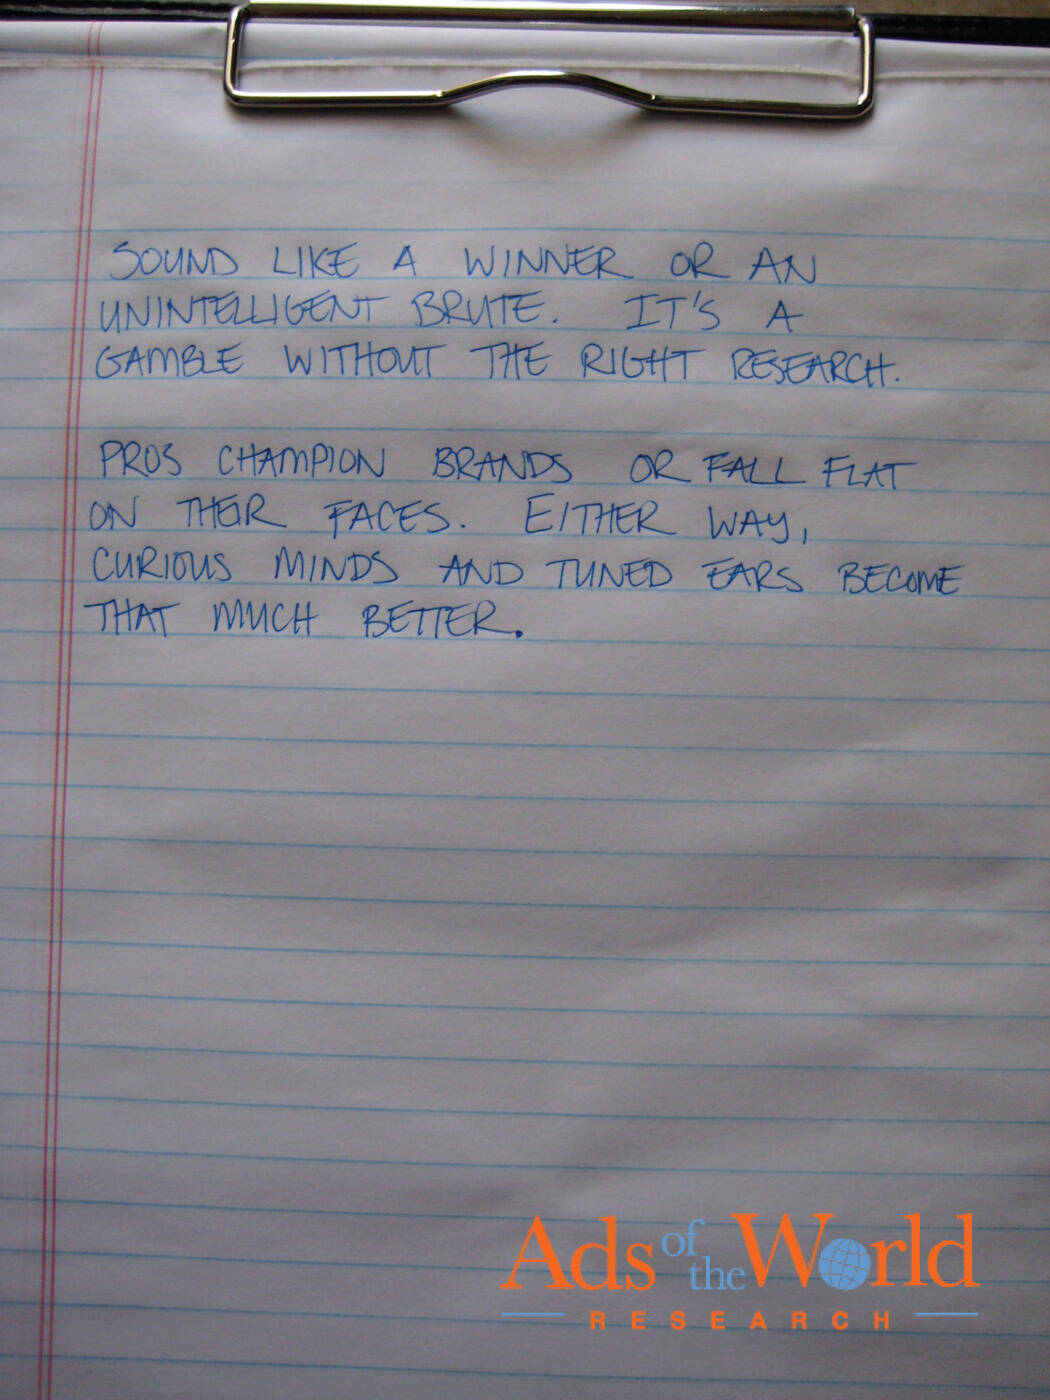 SOUND LIKE A WINNER OR AN
UNINTELLIGENT BRUTE. IT'S A
GAMBLE WITHOUT THE RIGHT RESEARCH.
PROS CHAMPION BRANDS OR FALL FLAT
ON THEIR FACES. EITHER WAY,
CURIOUS MINDS AND TUNED EARS BECOME
THAT MUCH BETTER.
Ads of the World
RESEARCH